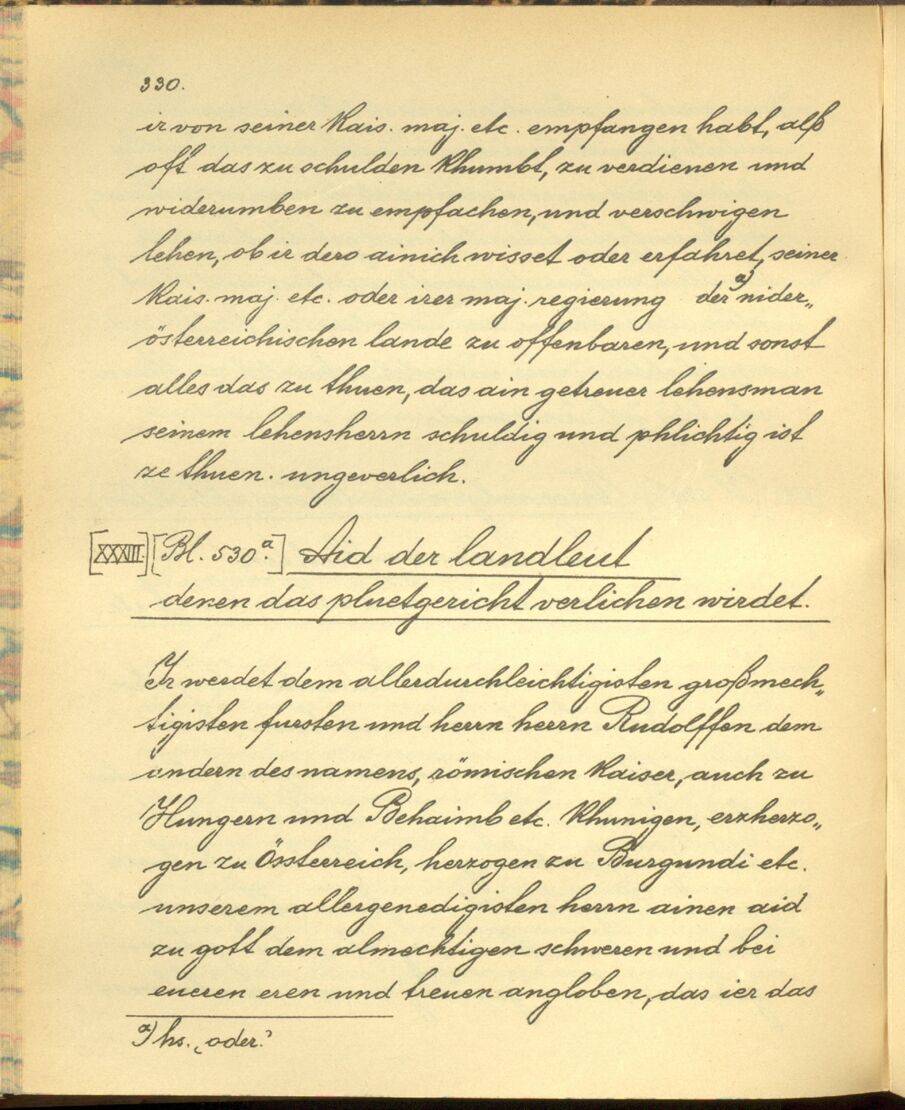 330.
ir von seiner Kais. maj. etc. empfangen habt, alß
oft das zu schulden khumbt, zu verdienen und
widerumben zu empfachen, und verschwigen
lehen, ob ir dero ainich wisset oder erfahret, seiner
Kais. maj. etc. oder irer maj. regierung der a) nider„
österreichischen lande zu offenbaren, und sonst
alles das zu thuen, das ain getreuer lehensman
seinem lehensherrn schuldig und phlichtig ist
ze thuen. ungeverlich.
[XXXIII.] [Bl. 530a.] Aid der landleut
denen das pluetgericht verlichen wirdet.
Ir werdet dem allerdurchleichtigisten großmech„
tigisten fursten und herrn herrn Rudolffen dem
andern des namens, römischen Kaiser, auch zu
Hungern und Behaimb etc. Khunigen, erzherzo„
gen zu Össterreich, herzogen zu Burgundi etc.
unserem allergenedigisten herrn ainen aid
zu gott dem almechtigen schweren und bei
eueren eren und treuen angloben, das ier das
a) hs. ‚oder.‘